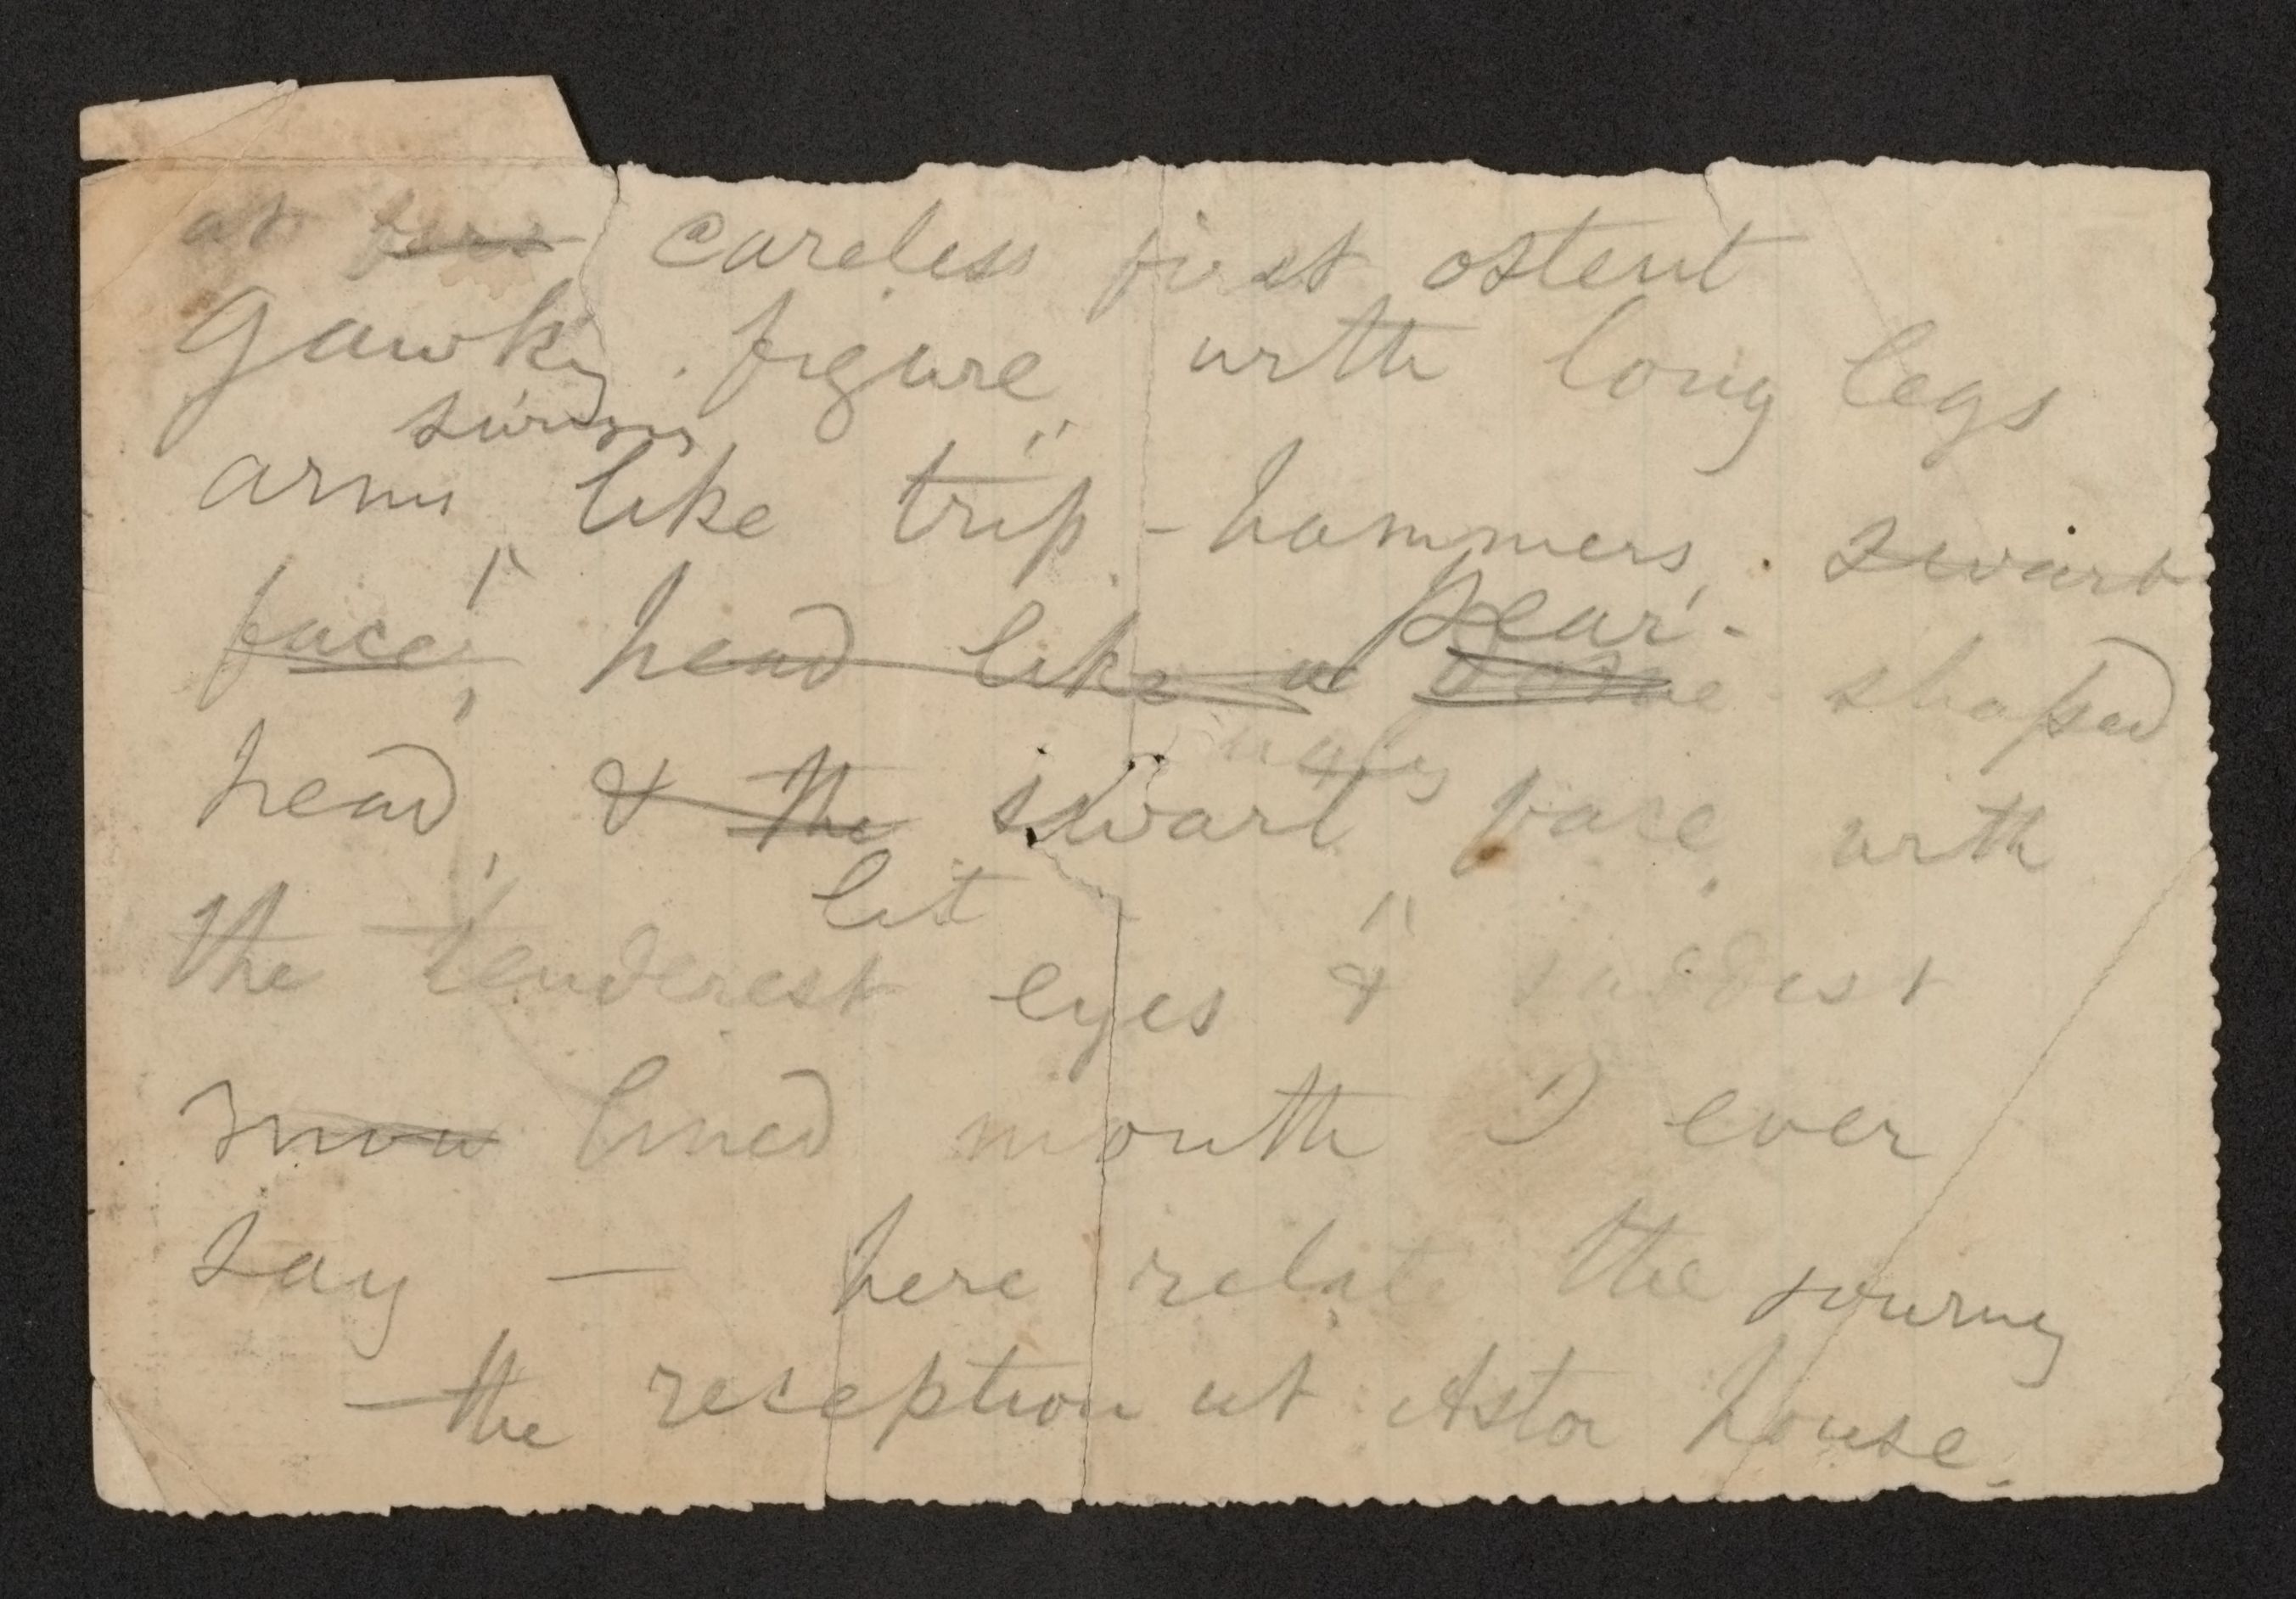 at careless first ostent
gawky figure, with long legs
swing
arms like trip-hammers, swart
pear-
face, head like a shaped
ugly
head, & the swart face, with
lit
the tenderest eyes & saddest
lined mouth I ever
say — here relate the journey
—the reception at Astor house.